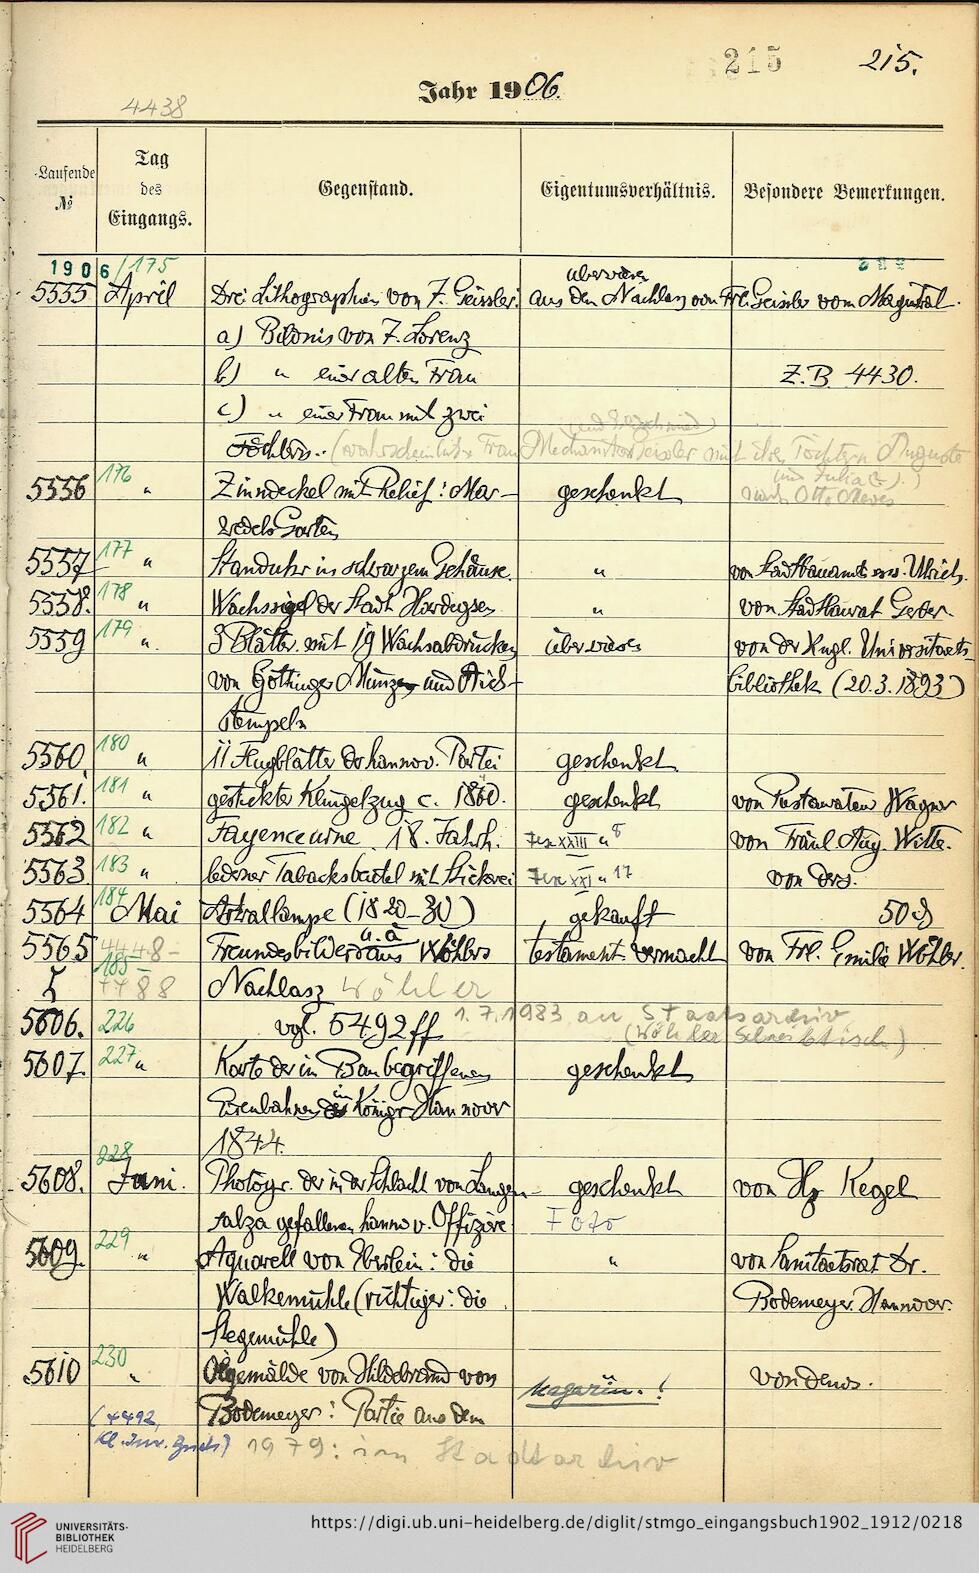 215
215.
Jahr 1906.
4438
Laufende №
Tag des Eingangs.
Gegenstand.
Eigentumsverhältnis.
Besondere Bemerkungen.
1906/175
überwiesen
5555 April Drei Lithographien von F. Geissler: aus dem Nachlass von Frl. Geissler vom Magistrat.
a) Bildnis von F. Lorenz
b) " einer alten Frau Z.B. 4430.
c) " einer Frau mit zwei
Töchtern. (wahrscheinlich Frau Mechaniker Geissler mit ihren Töchtern Auguste
und Julia
nach Otto Deneke
5556 176 " Zinndeckel mit Relief: Mar- geschenkt
wedels Garten
5557 177 " Standuhr in schwarzem Gehäuse. " von Stadtbauamts Ulrich.
5558. 178 " Wachssiegel der Stadt Hardegsen " von Stadtbaurat Gerber.
5559 179 " 3 Blätter mit 19 Wachsabdrücken überwiesen von der Kngl. Universitaets-
von Göttinger Münzen und Aich- bibliothek (20.3.1893)
stempeln
5560 180 " 11 Flugblätter der hannov. Partei geschenkt
5561. 181 " gestickter Klingelzug c. 1860. geschenkt von Wagner
5562 182 " Fayenceurne 18. Jahrh. XXIII " 8 von Fräul. Aug. Witte.
5563. 183 " lederner Tabacksbeutel mit Stickerei XXI " 17 von ders.
5564 184 Mai Astrallampe (1820-30) gekauft 50
5565 4448- Freundesbilder u.a. aus Wöhlers testament. vermacht von Frl. Emilie Wöhler.
185- 4488 Nachlasz Wöhler
1.7.1983 an Staatsarchiv
5606. 226 vgl. 5492ff (Wöhler Schreibtisch)
5607. 227 " Karte der im Bau begriffenen geschenkt
Eisenbahnen im Königr. Hannover
1844.
228
5608. Juni. Photogr. der in der Schlacht von Langen- geschenkt von Hr Kegel
salza gefallenen hannov. Offiziere Foto
5609. 229 " Aquarell von Eberlein: die " von Sanitaetsrat Dr.
Walkemühle (richtiger: die Bodemeyer. Hannover.
Stegemühle)
5610 230 " Oelgemälde von Hildebrand von Magazin.! von dems.
Bodemeyer: Partie aus dem
(4492,
1979: im Stadtarchiv
UNIVERSITÄTS-
BIBLIOTHEK
HEIDELBERG
https://digi.ub.uni-heidelberg.de/diglit/stmgo_eingangsbuch1902_1912/0218